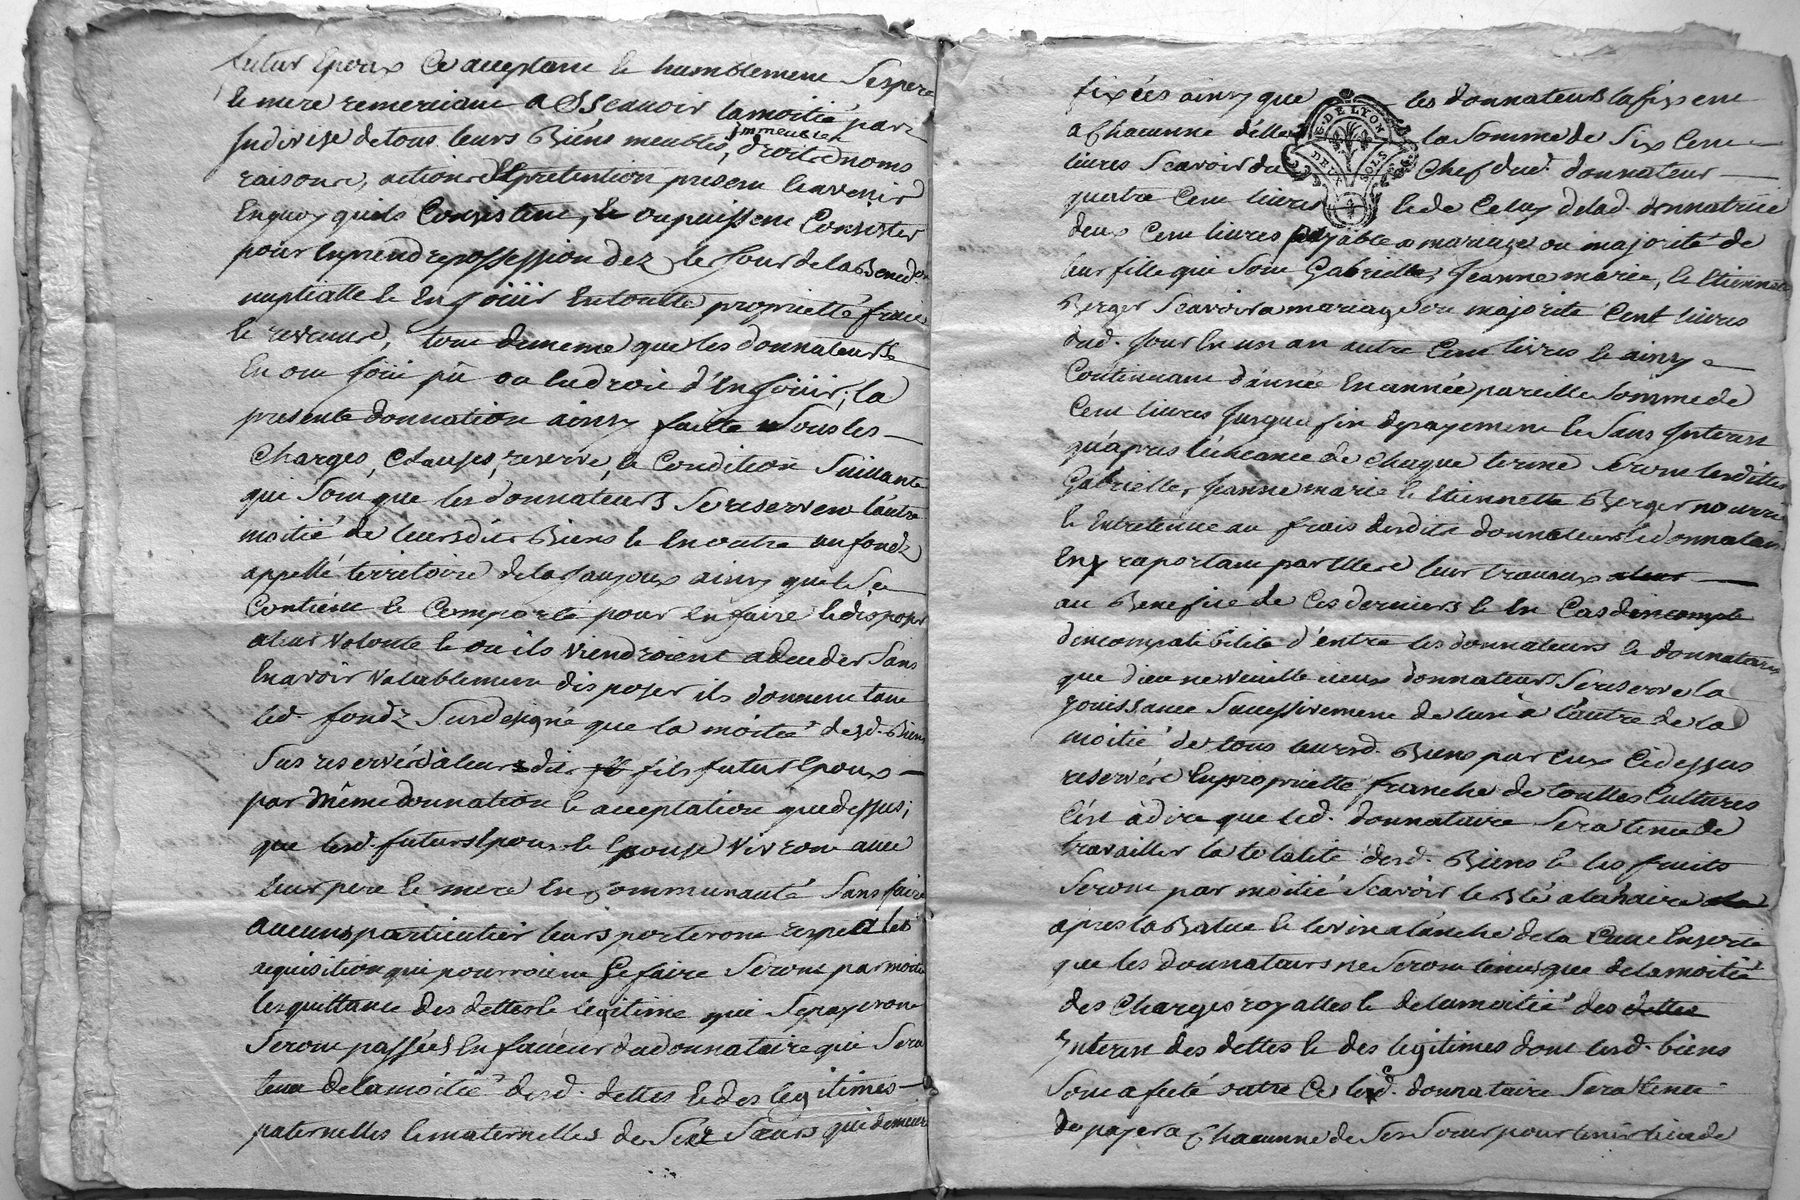 futur Epoux Ce acceptant & humblement Ses pere
& mere remerciant a SScavoir la moitié par
Indivise de tous leurs Biens meubles, immeubles droits noms
raisons, actions & pretention present & avenir
En quoy quils Consistent, & ou puissent Consister
pour En prendre possession dez le Jour de la Bened.on
nuptialle & En Joüir En toutte proprietté fruis
& revenus, tout de meme que les donnateurs
En ont Joüi pü ou Eu droit d'En Joüir; la
presente donnation ainsy faitte Sous les
Charges, Clauses, reserve, & Condition Suillante
qui Sont que les donnateurs Se reservent l'autre
moitié de leurs dits Biens & En outre un fondz
appellé territoire de la Jaujoux ainsy quel Se
Contient & Comporte pour En faire & disposer
aleur Volonté & ou ils viendroient adeceder Sans
En avoir Valablement disposer ils donnent tant
led. fondz Susdesigné que la moitié desd. Biens
Sus reservés à leurs dit fils futur Epoux
par même donnation & acceptation que dessus;
que lesd. futurs Epoux & Epouse Vivront avec
leur pere & mere En Communauté Sans faire
aucuns particulier leurs porteront respec a les
aquisition qui pourroient Se faire Seront par moitié
les quittance des dettes & legitime qui Se payeront
Seront passées En faveur dud donnataire qui Sera
tenu de la moitié desd. dettes & des legitimes
paternelles & maternelles de Ses Sœurs qui demeure
fixées ainsy que les donnateurs la fixent
a Chacunne d'elles la Somme de Six Cent
livres Scavoir du Chef dud. donnateur
quatre Cent livres & de Celuy de lad. donnatrice
deux Cent livres payable a mariage ou majorité de
leur fille qui Sont Gabrielle, Jeanne marie, & Etiennette
Berger Scavoir a mariage ou majorité Cent livres
dud. Jour En un an autre Cent livres & ainsy
Continuant d'année En année pareille Somme de
Cent livres Jusqua fin de payement & Sans Interest
qu'apres l'écheance de chaque terme Seront lesdittes
Gabrielle, Jeanne marie & Etiennette Berger nourrie
& Entretenue au frais desdits donnateurs & donnataire
En y raportant par Elles leur travaux
au Benefice de Ces derniers & En Cas d'incompte
d'incompatibilité d'entre les donnateurs & donnataire
que dieu ne veuille iceux donnateurs Se reserve la
Jouissance Successivement de lun à l'autre de la
moitié de tous leursd. Biens par Eux Cidessus
reservére En proprietté franche de touttes Cultures
C'est à dire que led. donnataire Sera tenu de
travailler la totalité desd. Biens & les fruits
Seront par moitié Scavoir le Blé a la haire
après la Batue & le vin a l'anche de la Cuve En sorte
que les donnateurs ne Seront tenus que de la moitié
des Charges royalles & de la moitié des dettes
Interest des dettes & des legitimes dont lesd. biens
Sont afecté outre Ce led. donnataire Sera tenu
de payer a Chacunne de Ses Sœur pour tenir lieu de
G. DE LYON
DEUX SOLS